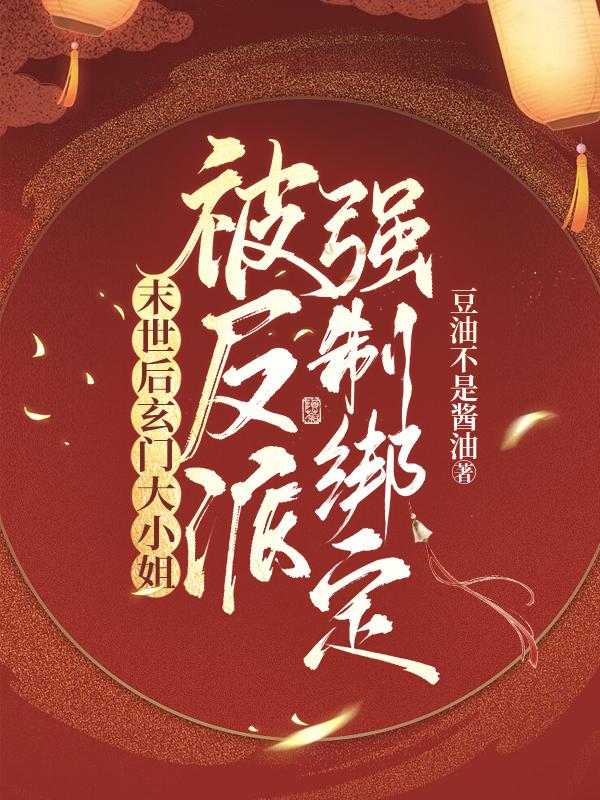 末世后玄门大小姐
被反派
强制绑定
豆油不是酱油著